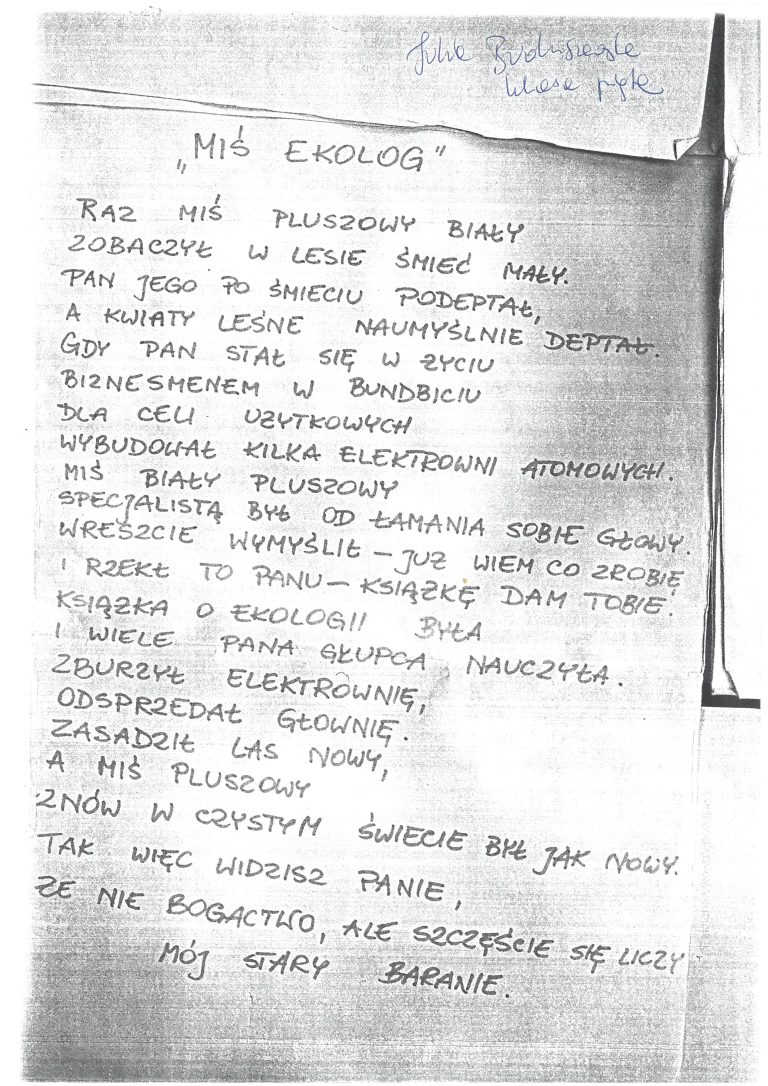 Julia
klasa piąta
„MIŚ EKOLOG”
RAZ MIŚ PLUSZOWY BIAŁY
ZOBACZYŁ W LESIE ŚMIEĆ MAŁY.
PAN JEGO PO ŚMIECIU PODEPTAŁ,
A KWIATY LEŚNE NAUMYŚLNIE DEPTAŁ.
GDY PAN STAŁ SIĘ W ŻYCIU
BIZNESMENEM W BUNDBICIU
DLA CELI UŻYTKOWYCH
WYBUDOWAŁ KILKA ELEKTROWNI ATOMOWYCH.
MIŚ BIAŁY PLUSZOWY
SPECJALISTĄ BYŁ OD ŁAMANIA SOBIE GŁOWY.
WRESZCIE WYMYŚLIŁ – JUŻ WIEM CO ZROBIĘ
I RZEKŁ TO PANU – KSIĄŻKĘ DAM TOBIE.
KSIĄŻKA O EKOLOGII BYŁA
I WIELE PANA GŁUPCA NAUCZYŁA.
ZBURZYŁ ELEKTROWNIĘ,
ODSPRZEDAŁ GŁOWNIĘ.
ZASADZIŁ LAS NOWY,
A MIŚ PLUSZOWY
ZNÓW W CZYSTYM ŚWIECIE BYŁ JAK NOWY.
TAK WIĘC WIDZISZ PANIE,
ŻE NIE BOGACTWO, ALE SZCZĘŚCIE SIĘ LICZY
MÓJ STARY BARANIE.